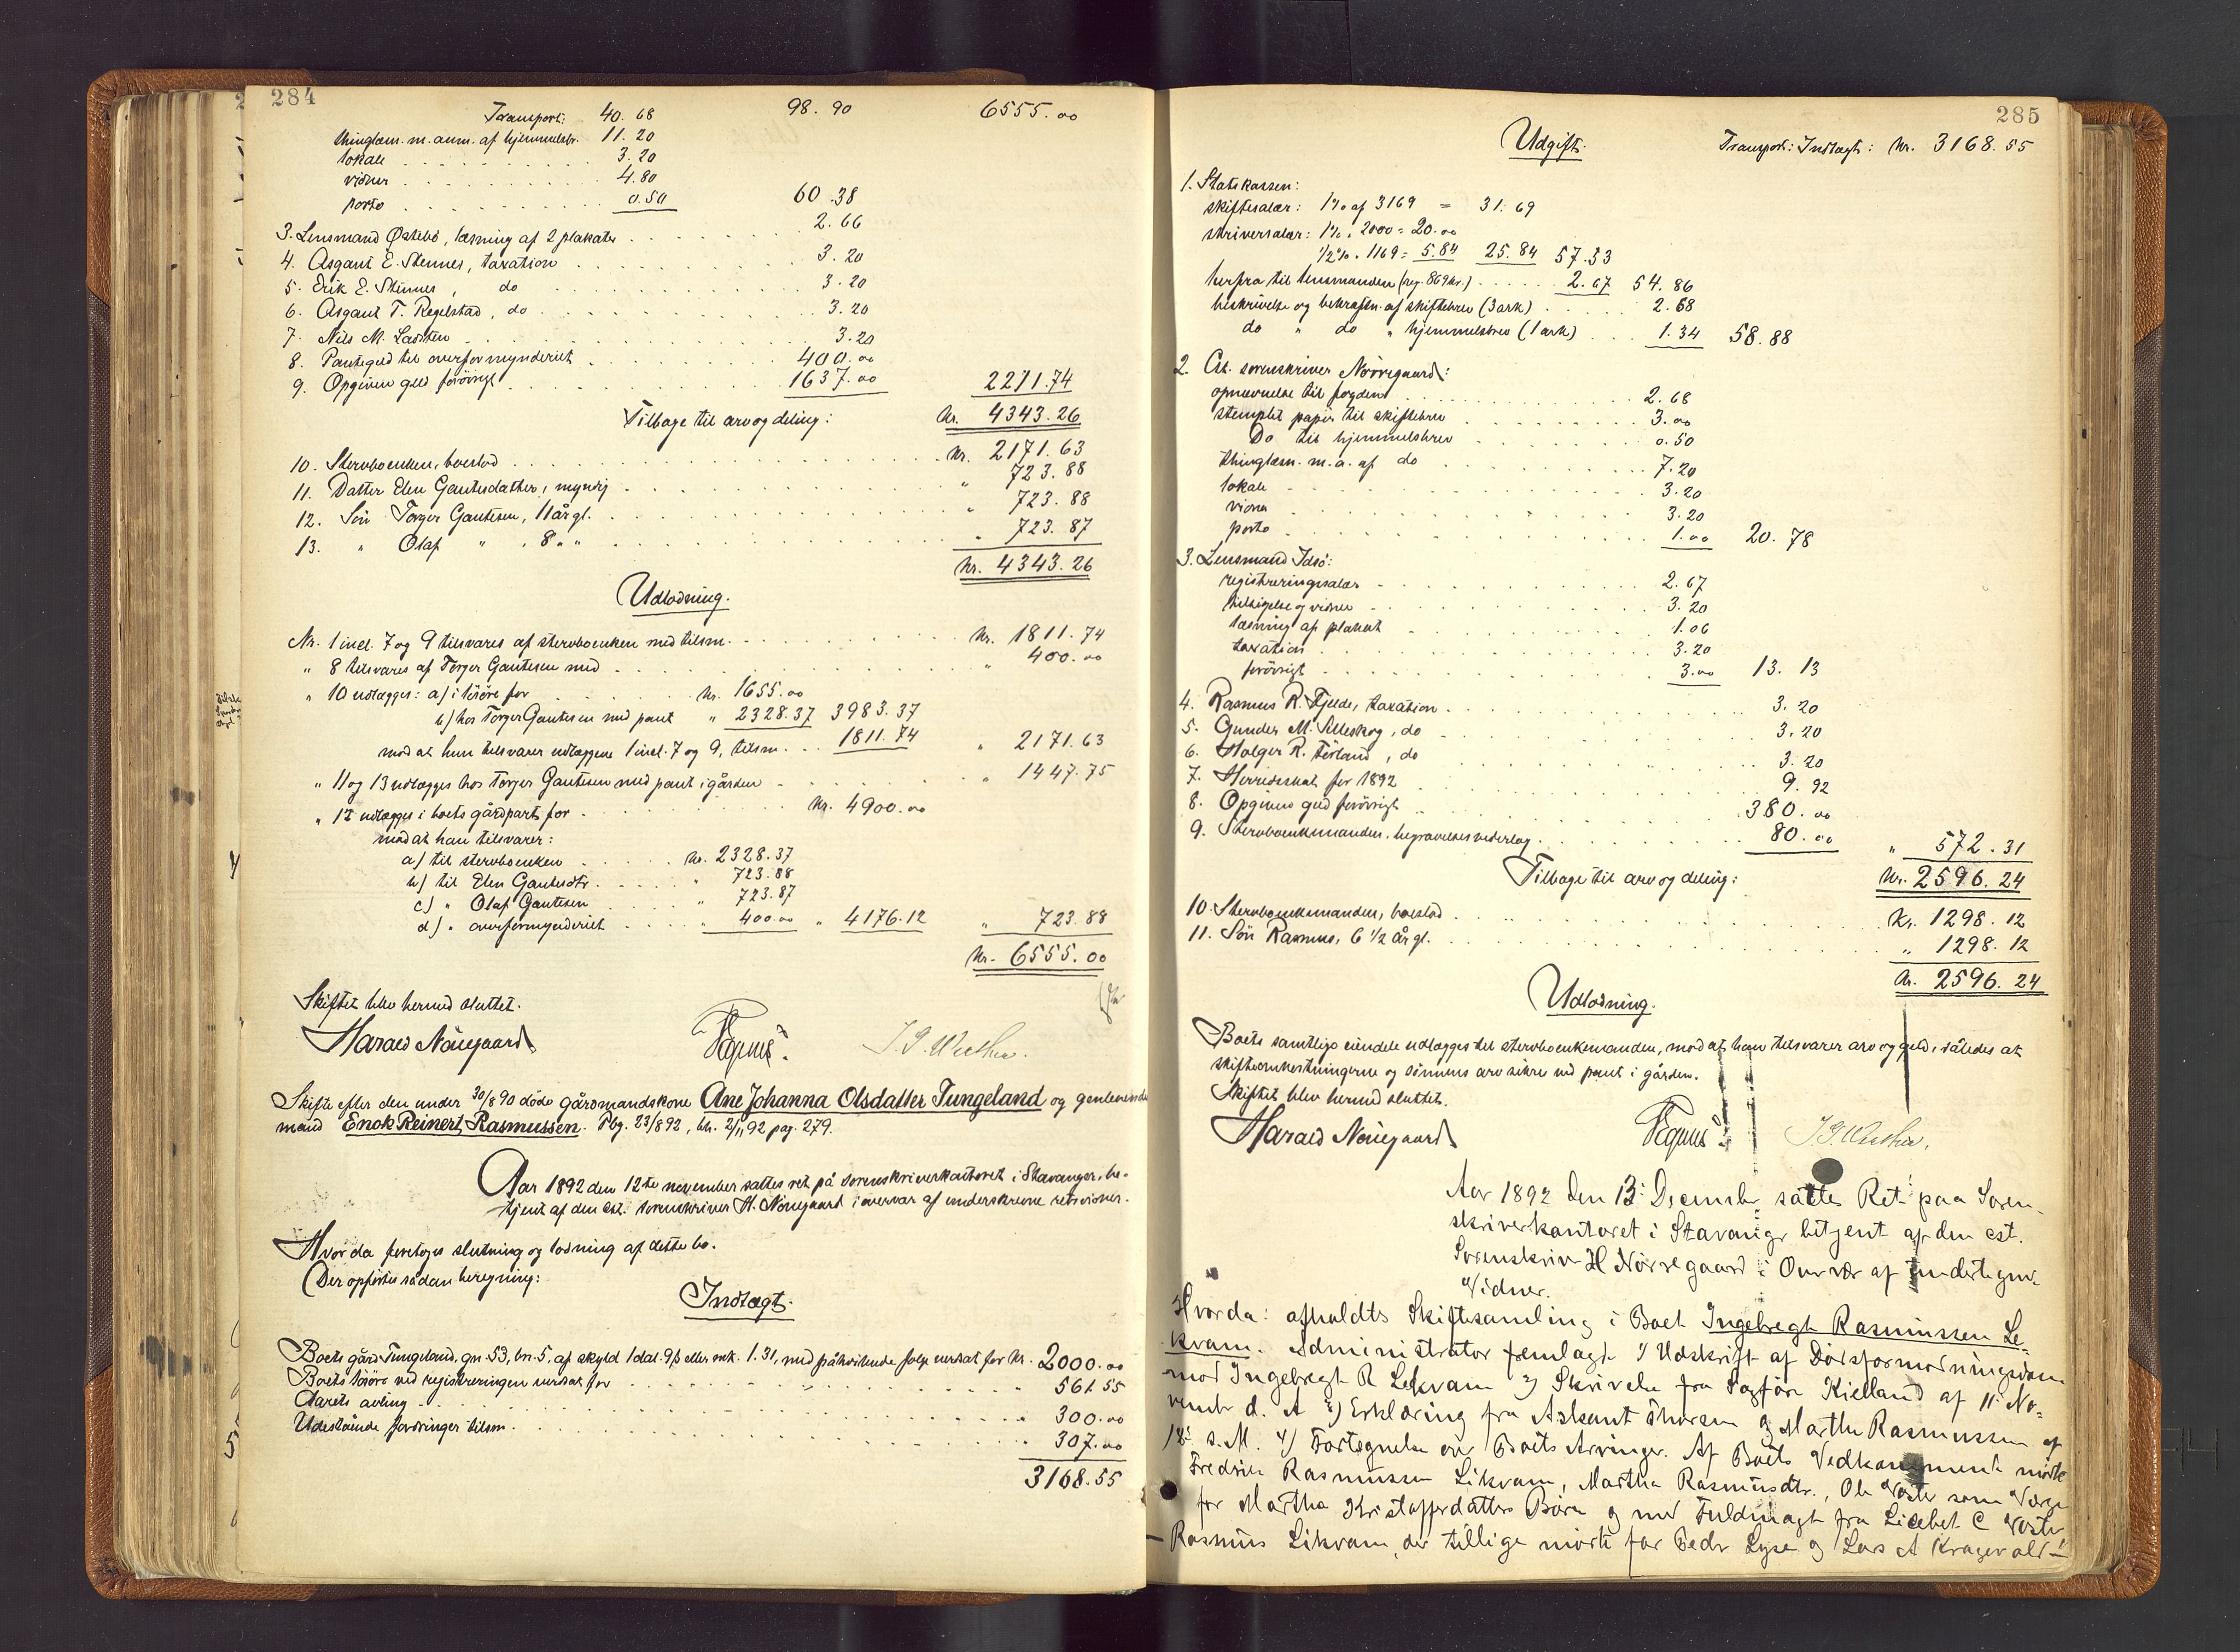 284
Transport: 40.68 98.90 6555.00
thinglæsn. m. anm. af hjemmelsbr. 11.20
lokale 3.20
vidner 4.80
porto 0.50 60.38
3. Lensmand Østebø, læsning af 2 plakater 2.66
4. Asgaut E. Stennes, taxation 3.20
5. Erik E. Stennes, do 3.20
6. Asgaut T. Regelstad, do 3.20
7. Nils M. 3.20
8. Pantegjeld til overformynderiet 400.00
9. Opgiven gjeld forövrigt 1637.00 2211.74
Tilbage til arv og deling: Kr. 4343.26
10. Stervboenken, boeslod Kr. 2171.63
11. Datter Elen Gautesdatter, myndig " 723.88
12. Sön Torger Gautesen, 11 år gl. " 723.88
13. " Olaf " , 8 " " " 723.87
Kr. 4343.26
Udlodning.
Nr. 1 incl. 7 og 9 tilsvares af stervboenken med tilsm. Kr. 1811.74
" 8 tilsvares af Torger Gautesen med " 400.00
" 10 udlægges: a) i lösöre for Kr. 1655.00
b) hos Torger Gautesen med pant " 2328.37 3983.37
mod at hun tilsvarer udlæggene 1 incl. 7 og 9, tilsm. 1811.74 " 2171.63
" 11 og 13 udlægges hos Torger Gautesen med pant i gården " 1447.75
" 12 udlægges i boets gårdpart for Kr. 4900.00
mod at han tilsvarer:
a) til stervboenken Kr. 2328.37
b) til Elen Gautesdtr. " 723.88
c) " Olaf Gautesen " 723.87
d) " overformynderiet " 400.00 " 4176.12 " 723.88
Kr. 6555.00
Skiftet blev hermed sluttet.
Harald Nörregaard
Skifte efter den under 30/8 90 döde gårdmandskone Ane Johanna Olsdatter Tungeland og gjenlevende
mand Enok Reinert Rasmussen. Pbg. 23/8 92, 2/11 92 pag. 279.
Aar 1892 den 12te november sattes ret på sorenskriverkontoret i Stavanger, be-
tjent af den cst. sorenskriver H. Nörregaard i overvær af underskrevne retsvidner.
Hvor da foretoges slutning og lodning af dette bo.
Der opførtes sådan beregning:
Indtægt.
Boets gård Tungeland, gn. 53, bn. 5, af skyld 1 dal. 9 ß eller mk. 1.31, med påhvilende folge verdsat for Kr. 2000.00
Boets lösöre ved registreringen verdsat for " 561.55
Aarets avling " 300.00
Udestående fordringer tilsm. " 307.00
3168.55
285
Udgift. Transport: Indtægt: Kr. 3168.55
1. Statskassen:
skiftesalær: 1% af 3169 = 31.69
skriversalær: 1% " 2000 = 20.00
1/2% " 1169 = 5.84 25.84 57.53
herfra til lensmanden (reg. 869 kr.) 2.67 54.86
beskrivelse og bekræftn. af skiftebrev (3 ark) 2.68
do " do " hjemmelsbrev (1 ark) 1.34 58.88
2. Cst. sorenskriver Nörregaard:
opnævnelse til fogden 2.68
stemplet papir til skiftebrev 3.00
Do til hjemmelsbrev 0.50
thinglæsn. m. a. af do 7.20
lokale 3.20
vidner 3.20
porto 1.00 20.78
3. Lensmand Idsö:
registreringssalær 2.67
tilsigelse og vidner 3.20
læsning af plakat 1.06
taxation 3.20
forövrigt 3.00 13.13
4. Rasmus R. Fjelde, taxation 3.20
5. Gunder M. Selleskog, do 3.20
6. Holger R. Förland, do 3.20
7. Herredsskat for 1892 9.92
8. Opgiven gjeld forövrigt 380.00
9. Stervboenkemanden, begravelsesvederlag 80.00 " 572.31
Tilbage til arv og deling: Kr. 2596.24
10. Stervboenkemanden, boeslod Kr. 1298.12
11. Sön Rasmus, 6 1/2 år gl. " 1298.12
Kr. 2596.24
Udlodning.
Boets samtlige eiendele udlægges til stervboenkemanden, mod at han tilsvarer arv og gjeld, således at
skifteomkostningerne og sönnens arv sikres ved pant i gården.
Skiftet blev hermed sluttet.
Harald Nörregaard
Aar 1892 den 13. Decembr sattes Ret paa Soren-
skriverkontoret i Stavanger betjent af den cst.
Sorenskriver H Nörregaard i Overvær af undertegnede
Vidner.
Hvorda: afholdtes Skiftesamling i Boet Ingebregt Rasmussen Le-
kvam. Administrator fremlagde 1) Udskrift af Dödsformodningsdom
mod Ingebregt R Lekvam 2) Skrivelse fra Sagförer Kielland af 11. No-
vembr d. A 3) Erklæring fra Askaut Thorsen og Marthe Rasmussen af
12. d. M. 4) Fortegnelse over Boets Arvinger. Af Boets Vedkommende mödte
Fredrik Rasmussen Likvam, Martha Rasmusdtr., Ole som Værge
for Martha Kristofferdatters Börn og med Fuldmagt fra Lisebet C
Rasmus Likvam, der tillige mödte for Peder Lyse og Lars A